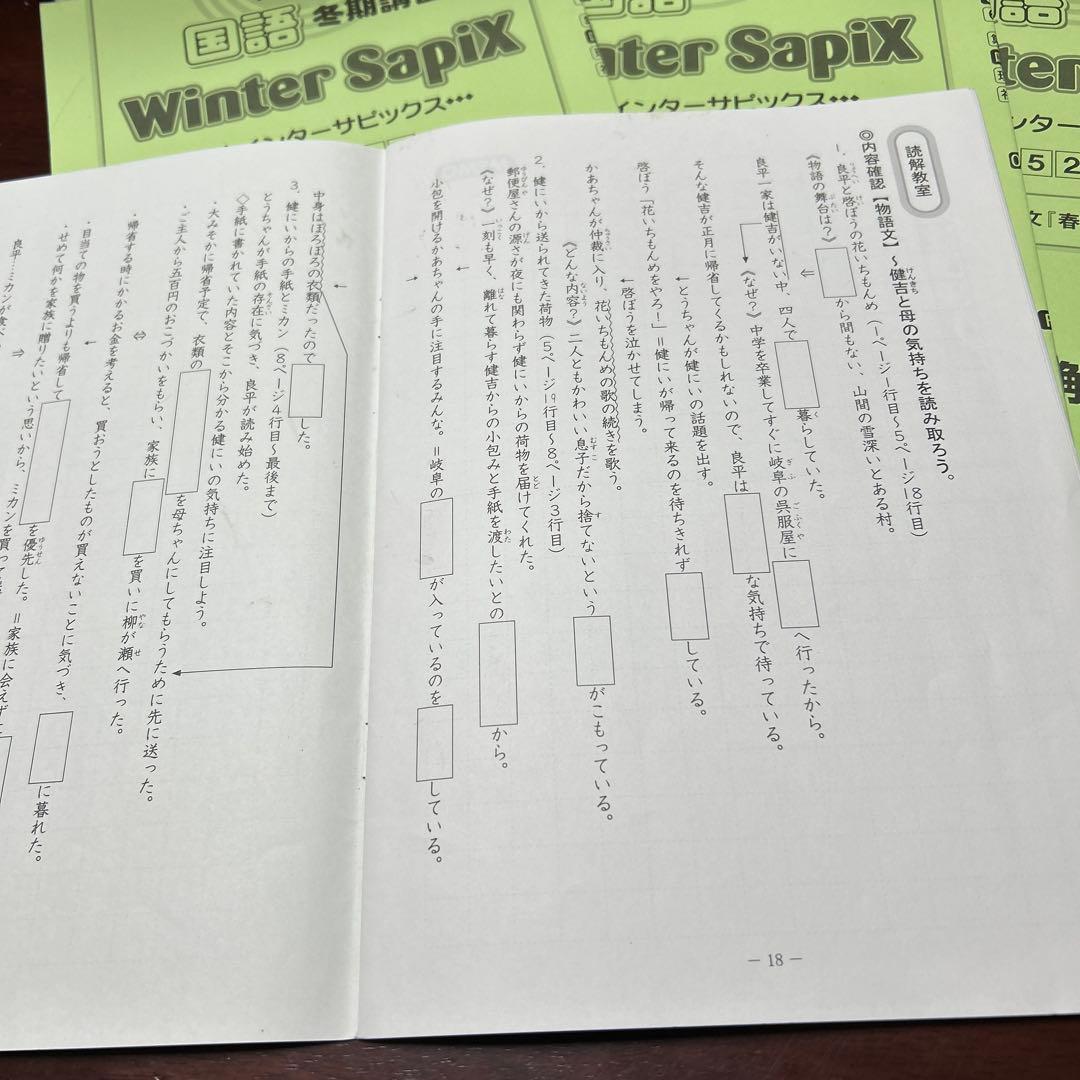 国語 冬期講
Winter SapiX
インターサピックス…
nter SapiX
インターサピックス…
語
ter
ンター
0 5 2
文『春
解
読解教室
◎内容確認【物語文】~健吉と母の気持ちを読み取ろう。
1、良平と啓ぼうの花いちもんめ(1ページ1行目~5ページ18行目)
《物語の舞台は?》 から間もない、山間の雪深いとある村。
⇐
良平一家は健吉がいない中、四人で 暮らしていた。
《なぜ?》中学を卒業してすぐに岐阜の呉服屋に へ行ったから。
そんな健吉が正月に帰省してくるかもしれないので、良平は な気持ちで待っている。
←とうちゃんが健にいの話題を出す。
啓ぼう「花いちもんめをやろ!」=健にいが帰って来るのを待ちきれず している。
←啓ぼうを泣かせてしまう。
かあちゃんが仲裁に入り、花いちもんめの歌の続きを歌う。
《どんな内容?》二人ともかわいい息子だから捨てないという がこもっている。
2、健にいから送られてきた荷物(5ページ19行目~8ページ3行目)
郵便屋さんの源さが夜にも関わらず健にいからの荷物を届けてくれた。
《なぜ?》一刻も早く、離れて暮らす健吉からの小包みと手紙を渡したいとの から。
←
小包を開けるかあちゃんの手に注目するみんな。=岐阜の が入っているのを している。
←
中身はぼろぼろの衣類だったので した。
3、健にいからの手紙とミカン(8ページ4行目~最後まで)
とうちゃんが手紙の存在に気づき、良平が読み始めた。
◇手紙に書かれていた内容とそこから分かる健にいの気持ちに注目しよう。
・大みそかに帰省予定で、衣類の を母ちゃんにしてもらうために先に送った。
・ご主人から五百円のおこづかいをもらい、家族に を買いに柳が瀬へ行った。
⇔
・帰省する時にかかるお金を考えると、買おうとしたものが買えないことに気づき、 に暮れた。
←
・目当ての物を買うよりも帰省して を優先した。=家族に会えず
・せめて何かを家族に贈りたいという思いから、ミカンを買って
⇒
良平…ミカンが食べ
— 18 —